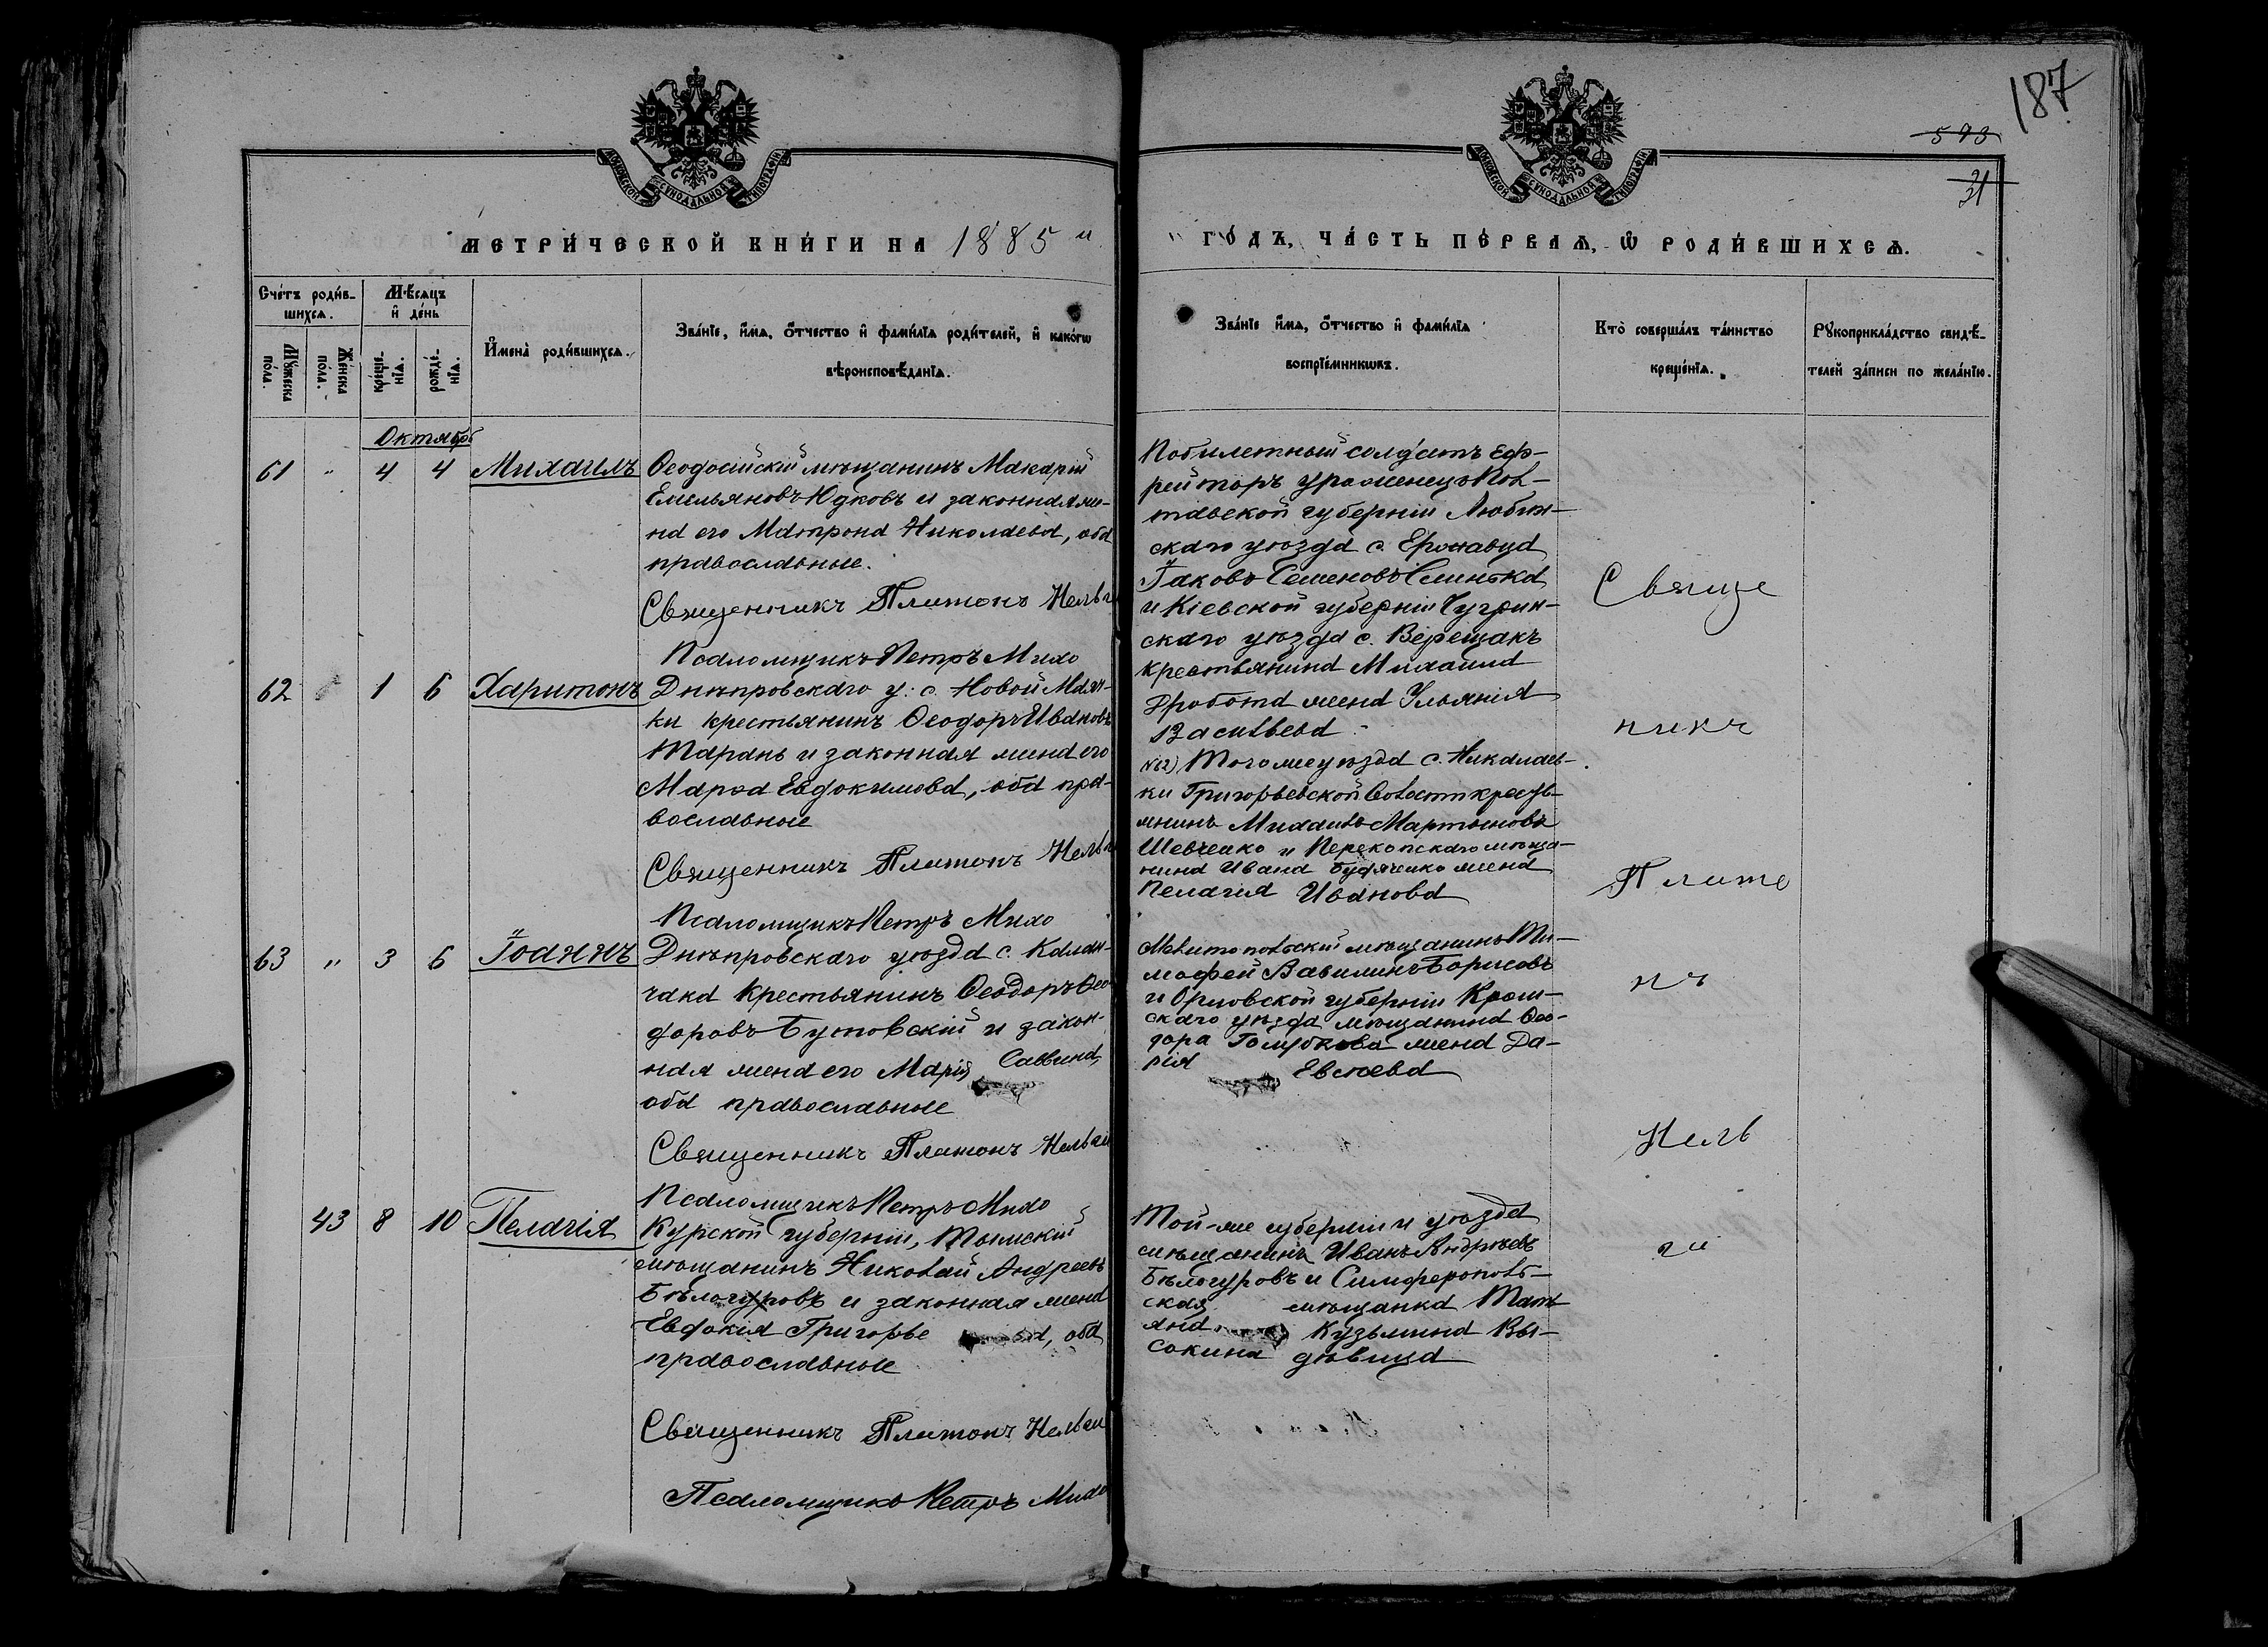 187
593
31
МОСКОВСКОЙ СѴНОДАЛЬНОЙ ТИПОГРАФІИ
МОСКОВСКОЙ СѴНОДАЛЬНОЙ ТИПОГРАФІИ
МЕТРИ́ЧЕСКОЙ КНИ́ГИ НА 1885 й
ГО́ДЪ, ЧА́СТЬ ПЕ́РВАѦ, Ѽ РОДИ́ВШИХСѦ.
Сче́тъ роди́в-
шихсѧ.
Мѣ́сѧцъ
и҆ де́нь
Мꙋ́жеска по́ла.
Же́нска по́ла.
креще́-нїѧ.
рожде́-нїѧ.
И҆мена̀ роди́вшихсѧ.
Зва́нїе, и҆́мѧ, ѻ҆́тчество и҆ фами́лїѧ роди́телей, и҆ како́гѡ
вѣроисповѣ́данїѧ.
Зва́нїе и҆́мѧ, ѻ҆́тчество и҆ фами́лїѧ
воспрїе́мникѡвъ.
Кто̀ соверша́лъ та́инство
креще́нїѧ.
Рꙋкоприкла́дство свидѣ́-
телей за́писи по жела́нїю.
Октябрь
61 " 4 4 Михаилъ
Ѳеодосійскій мѣщанинъ Макарій
Емельяновъ Юдковъ и законная же-
на его Матрона Николаева, оба
православные.
Священникъ Платонъ Нельги
Псаломщикъ Петръ Михо
Побилетный солдатъ Еф-
рейторъ уроженецъ Пол-
тавской губерніи Любен-
скаго уѣзда с.
Іаковъ Семеновъ
и Кіевской губерніи Чугрин-
скаго уѣзда с. Верещакъ
крестьянина Михаила
Дробота жена Ульянія
Васильева
62 1 6 Харитонъ
Днѣпровскаго у: с. Новой Маяч-
ки крестьянинъ Ѳеодоръ Ивановъ
Таранъ и законная жена его
Марѳа Евдокимова, оба пра-
вославные
Священникъ Платонъ Нельги
Псаломщикъ Петръ Михо
№62) Того же уѣзда с. Николаев-
ки Григорьевской волости кресть-
янинъ Михаилъ Мартыновъ
Шевченко и Перекопскаго мѣща-
нина Ивана жена
Пелагія Иванова
63 " 3 6 Іоаннъ
Днѣпровскаго уѣзда с. Калан-
чака Крестьянинъ Ѳеодоръ Ѳео-
доровъ Бутовскій и закон-
ная жена его Марія Саввина,
оба православные
Священникъ Платонъ Нельги
Псаломщикъ Петръ Михо
Мелитопольскій мѣщанинъ Ти-
мофей Вавилинъ Борисовъ
и Орловской губерніи Кром-
скаго уѣзда мѣщанина Ѳео-
дора Голубкова жена Да-
рія Евсѣева
43 8 10 Пелагія
Курской губерніи, Тимскій
мѣщанинъ Николай Андреевъ
Бѣлогуровъ и законная жена
Евдокія Григорьева, оба
православные
Священникъ Платонъ Нельги
Псаломщикъ Петръ Михо
Той-же губерніи и уѣзда
мѣщанинъ Иванъ Андрѣевъ
Бѣлогуровъ и Симферополь-
ская мѣщанка Тать-
яна Кузьмина Вы-
сокина дѣвица
Свяще
никъ
Плато
нъ
Нель
ги